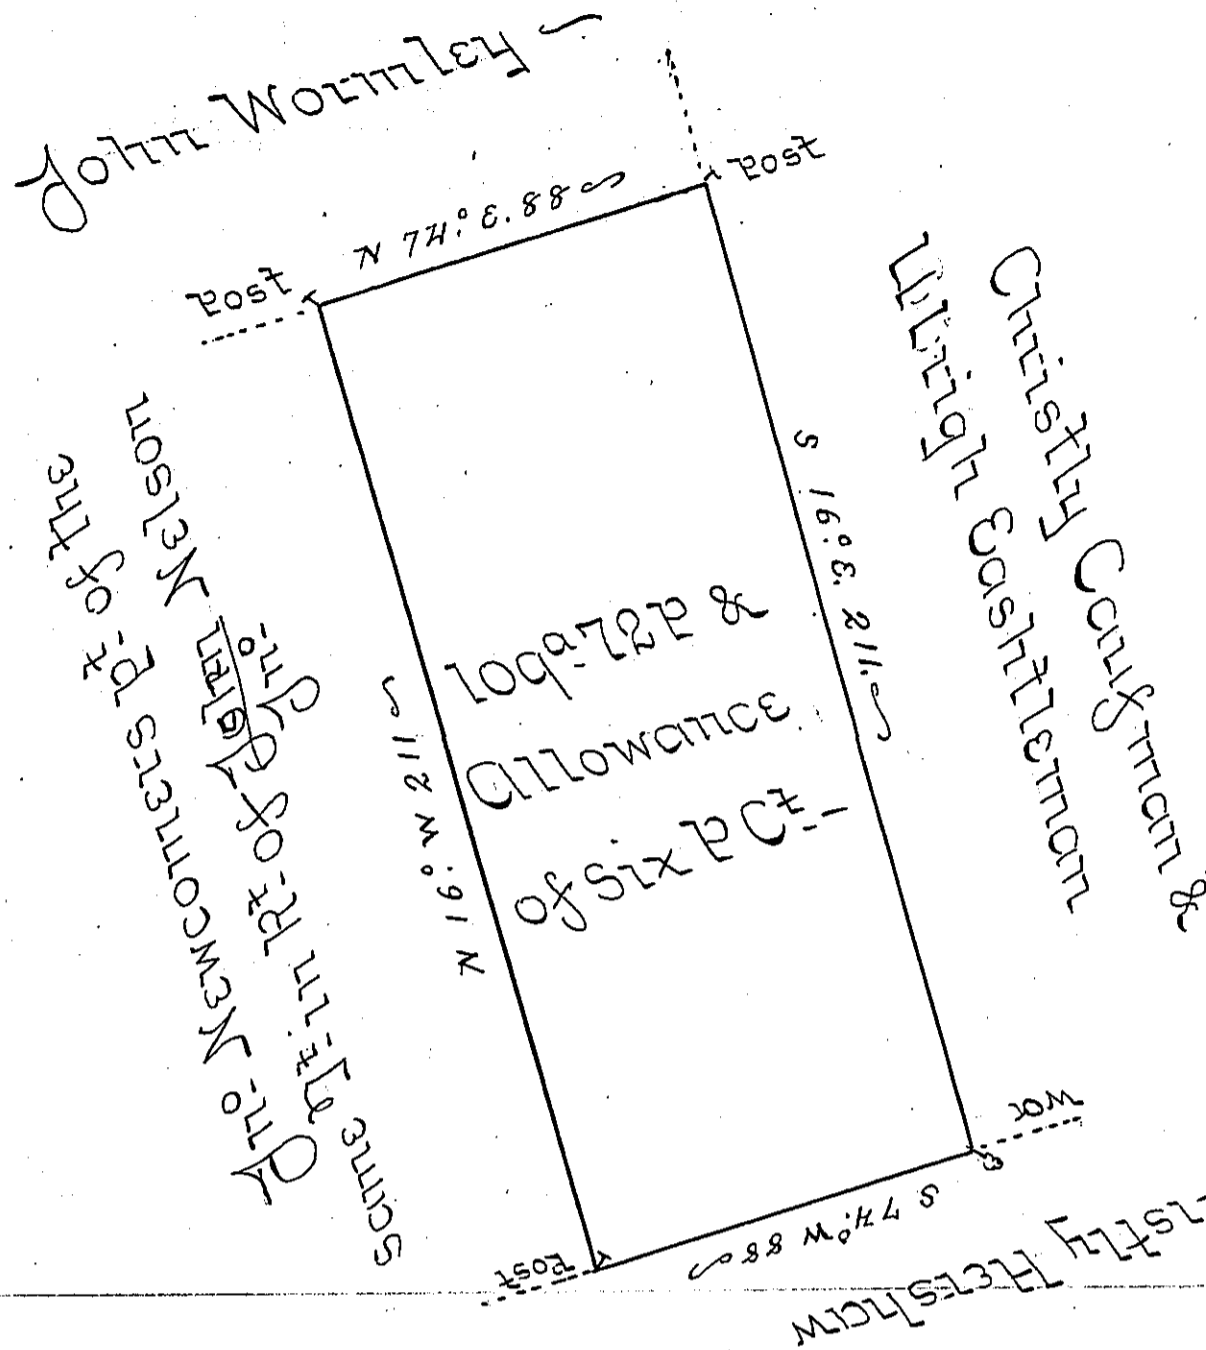 John Wormley
N 74.° E. 88
Post
Post
Christly Caufman &
Ulrigh Eashtleman
S 16° E. 211
&
Allowance
of six P Ct.
N 16.° W 211
Jno. Newcomers Pt. of the
same Tt. in Rt. of Nelson
Jno.
WO
S 74.° W 88
Post
istly Hershaw